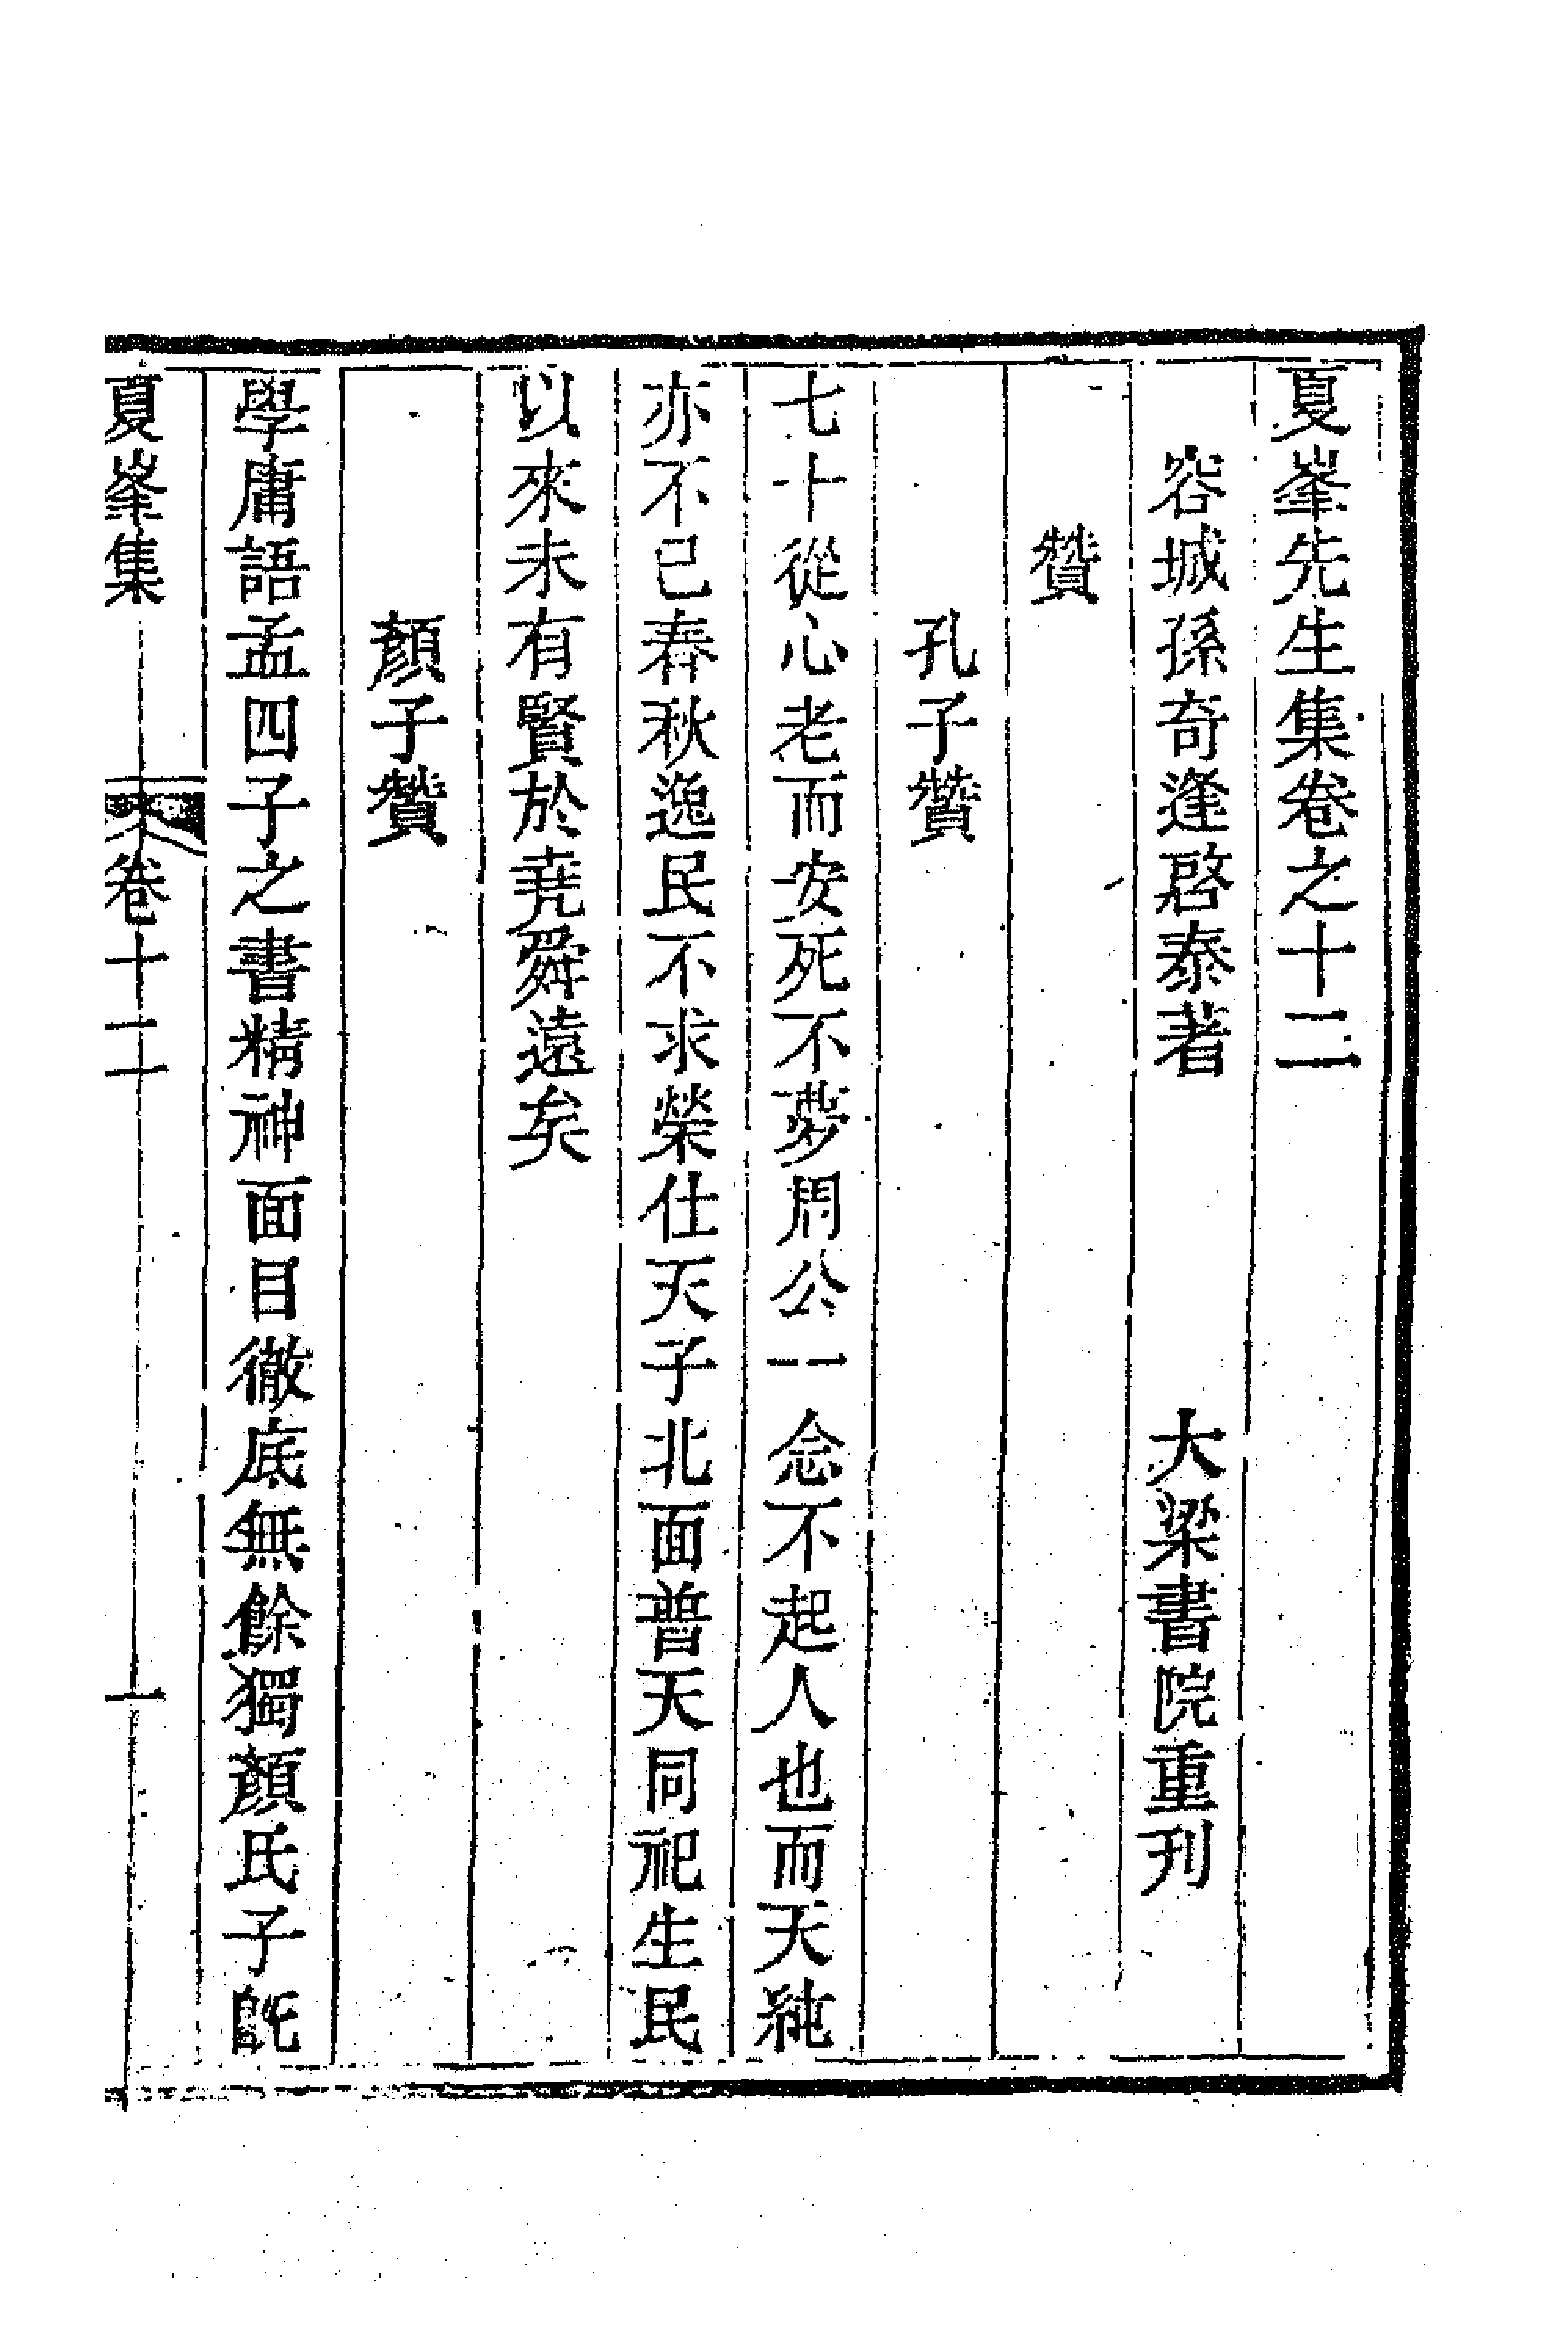 夏峯先生集卷之十二
容城孫奇逢啓泰著 大梁書院重刊
贊
孔子贊
七十從心老而安死不夢周公一念不起人也而天純
亦不已春秋逸民不求榮仕天子北面普天同祀生民
以來未有賢於堯舜遠矣
顏子贊
學庸語孟四子之書精神面目徹底無餘獨顏氏子旣
夏峯集 卷十二 一